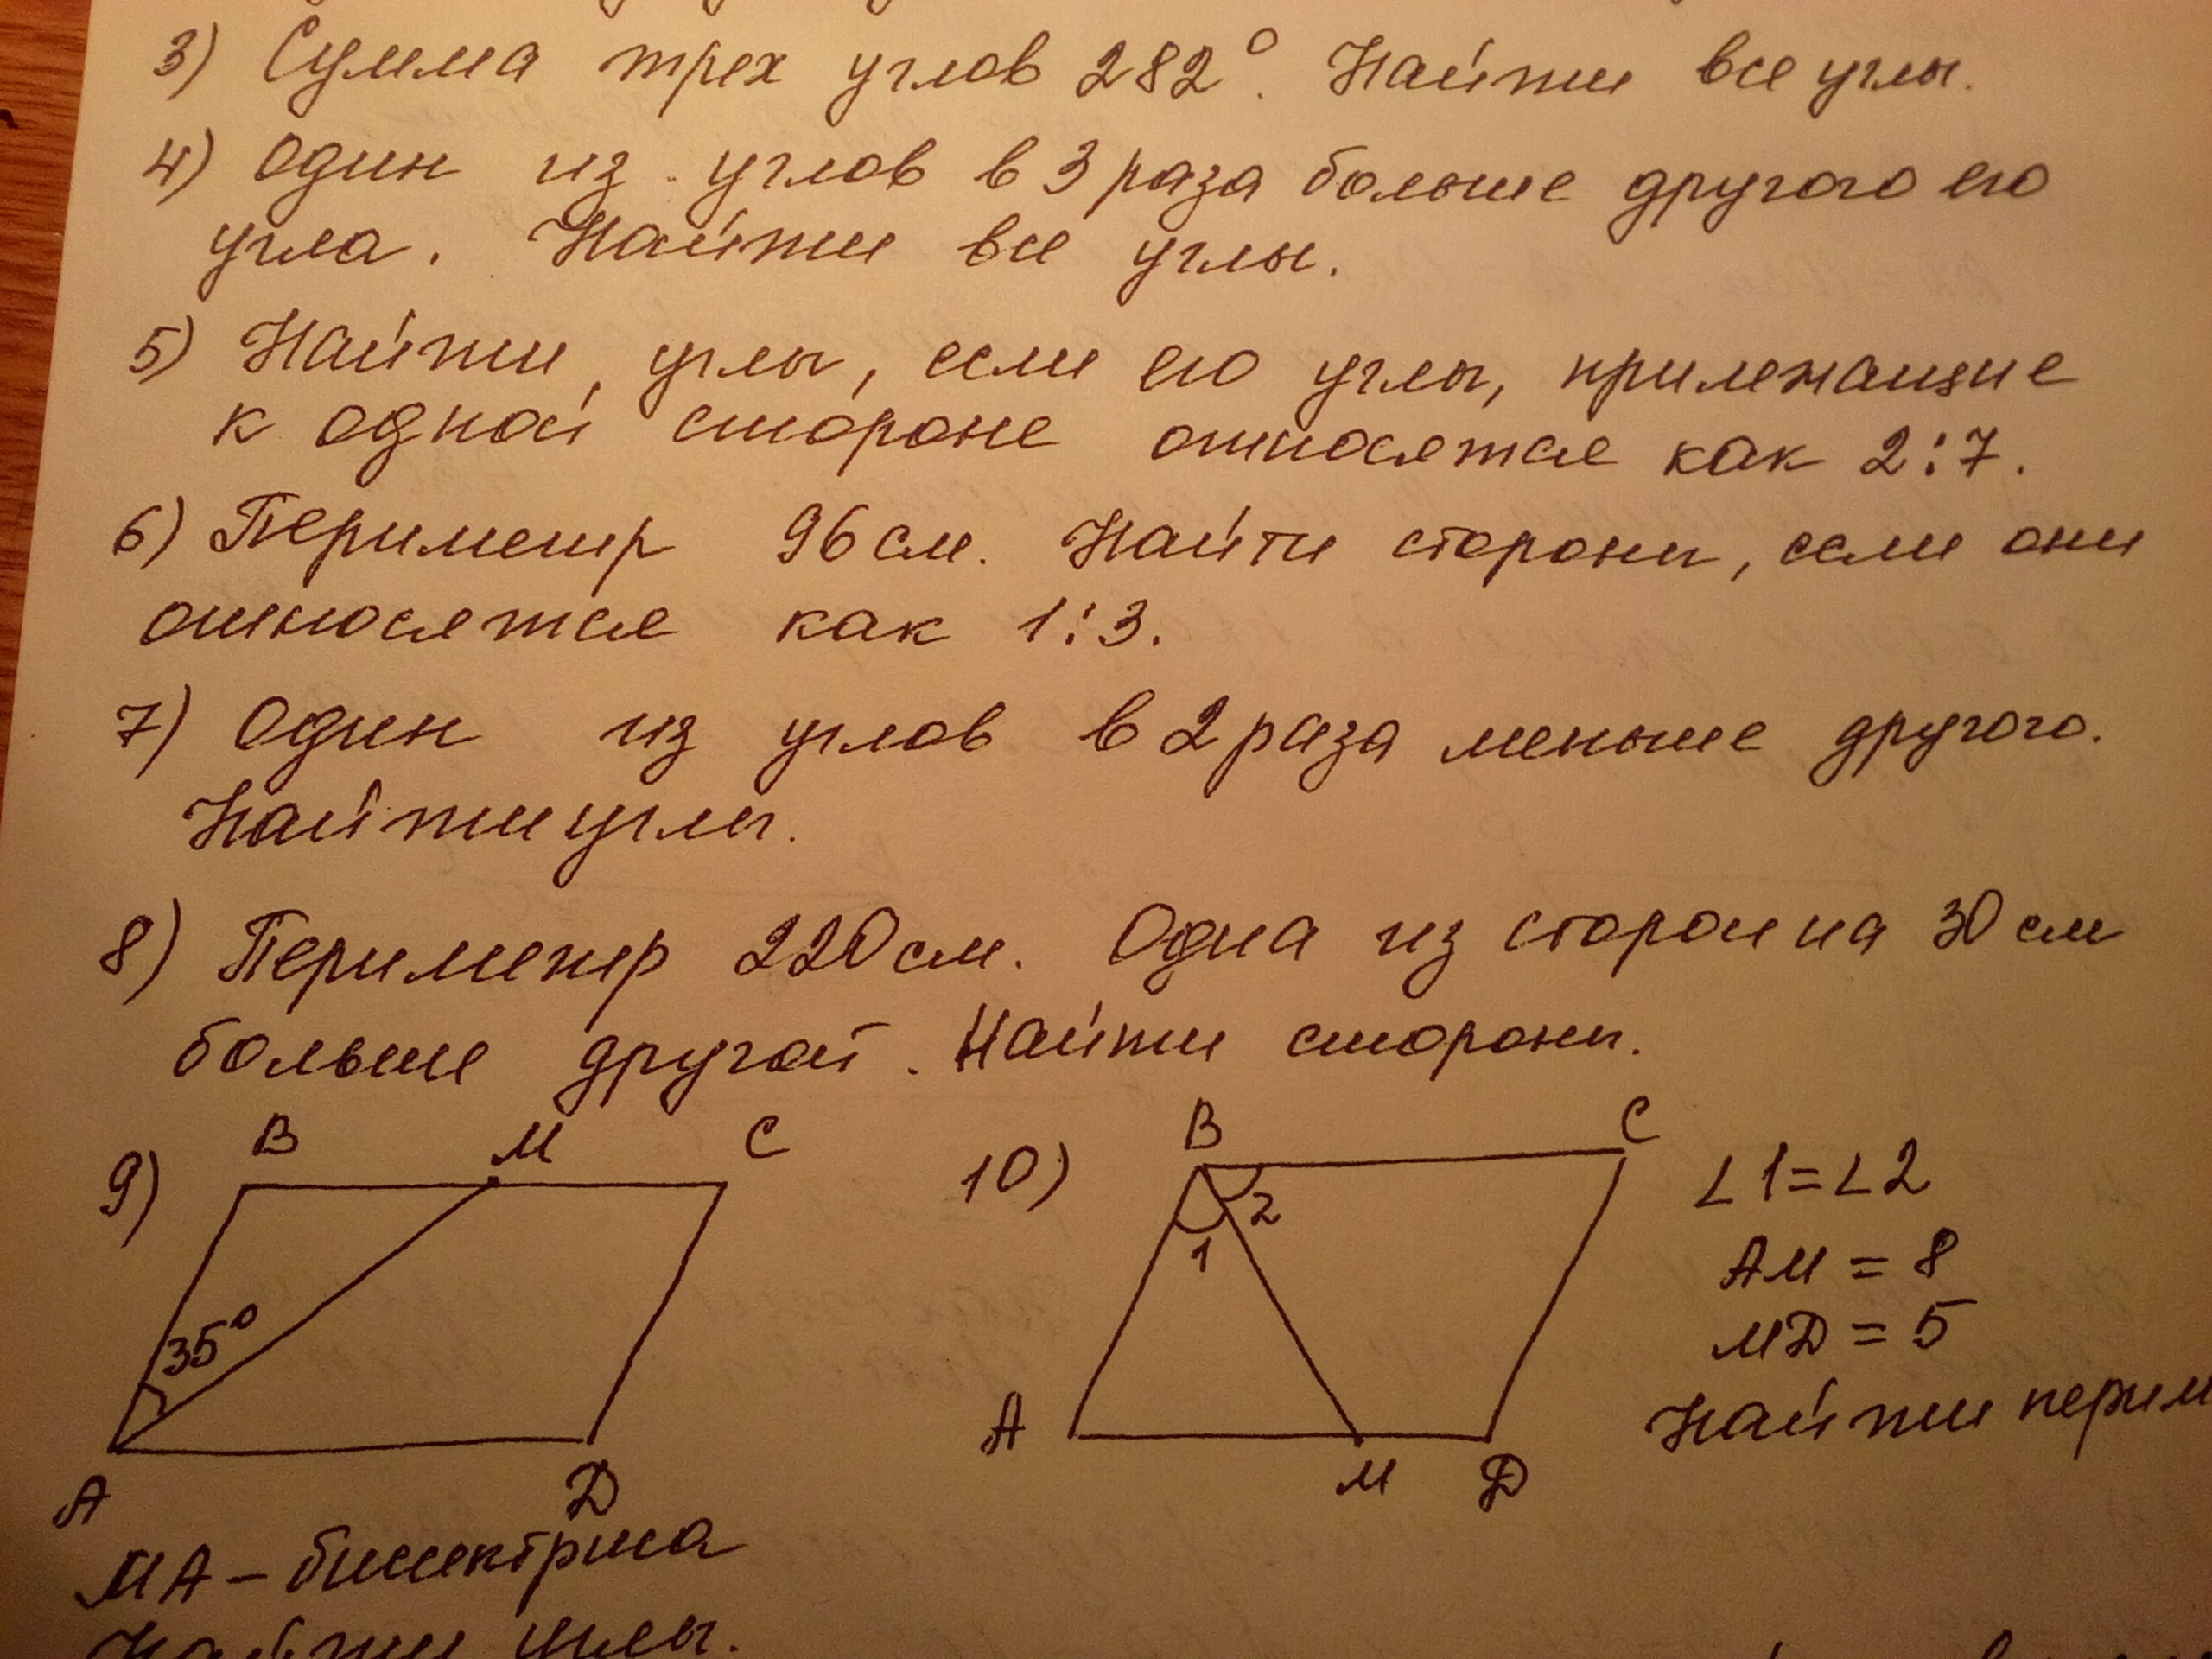 3) Сумма трех углов 282°. Найти все углы.
4) Один из углов в 3 раза больше другого его
угла. Найти все углы.
5) Найти углы, если его углы, прилежащие
к одной стороне относятся как 2:7.
6) Периметр 96 см. Найти стороны, если они
относятся как 1:3.
7) Один из углов в 2 раза меньше другого.
Найти углы.
8) Периметр 220 см. Одна из сторон на 30 см
больше другой. Найти стороны.
9)
B M C
35°
A D
MA - биссектриса
Найти углы.
10)
B C
2
1
A M D
∠1=∠2
AM = 8
MD = 5
Найти перим